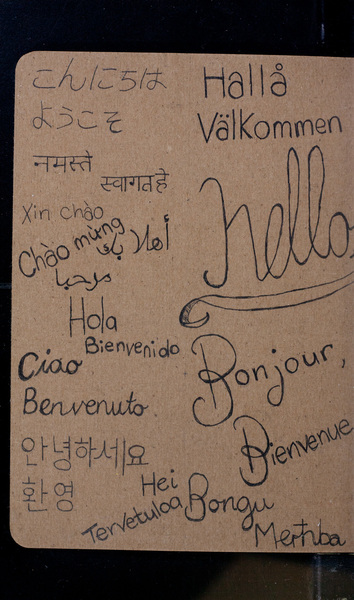 こんにちは
ようこそ
नमस्ते
स्वागत हे
Xin chào
Chào mừng
أهلا
مرحبا
Hola
Bienvenido
Ciao
Benvenuto
안녕하세요
환영
Hei
Tervetuloa
Hallå
Välkommen
hello
Bonjour,
Bienvenue
Bongu
Merħba